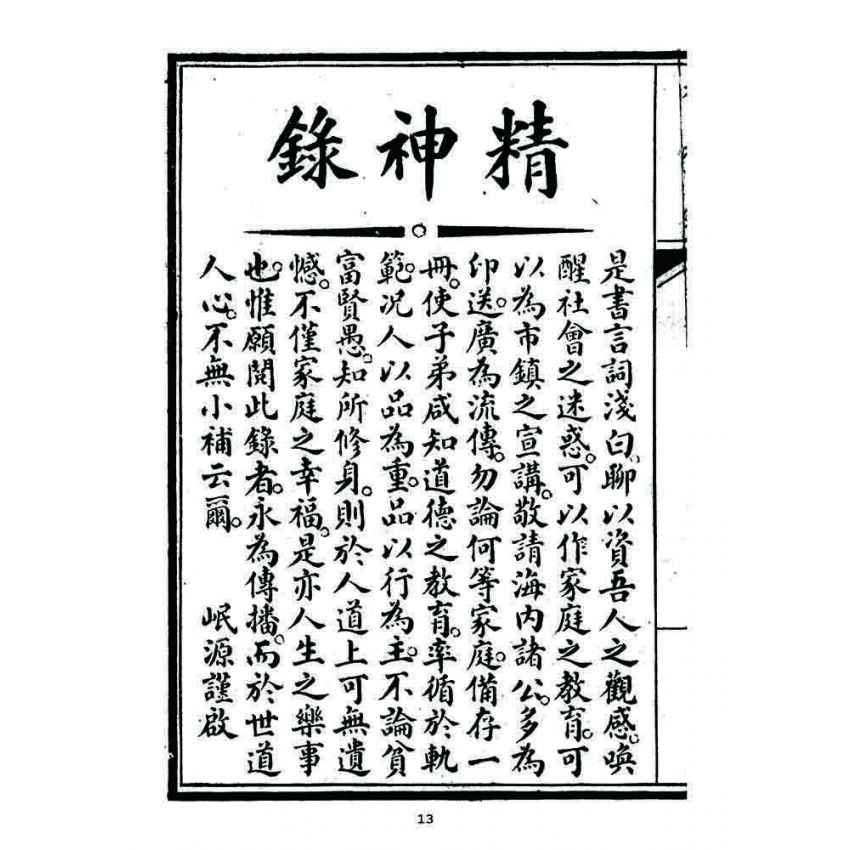 精神錄
是書言詞淺白。聊以資吾人之觀感。喚
醒社會之迷惑。可以作家庭之教育。可
以為市鎮之宣講。敬請海內諸公。多為
印送。廣為流傳。勿論何等家庭。備存一
冊。使子弟咸知道德之教育。率循於軌
範。況人以品為重。品以行為主。不論貧
富賢愚。知所修身。則於人道上可無遺
憾。不僅家庭之幸福。是亦人生之樂事
也。惟願閱此錄者。永為傳播。而於世道
人心。不無小補云爾。 岷源謹啟
13